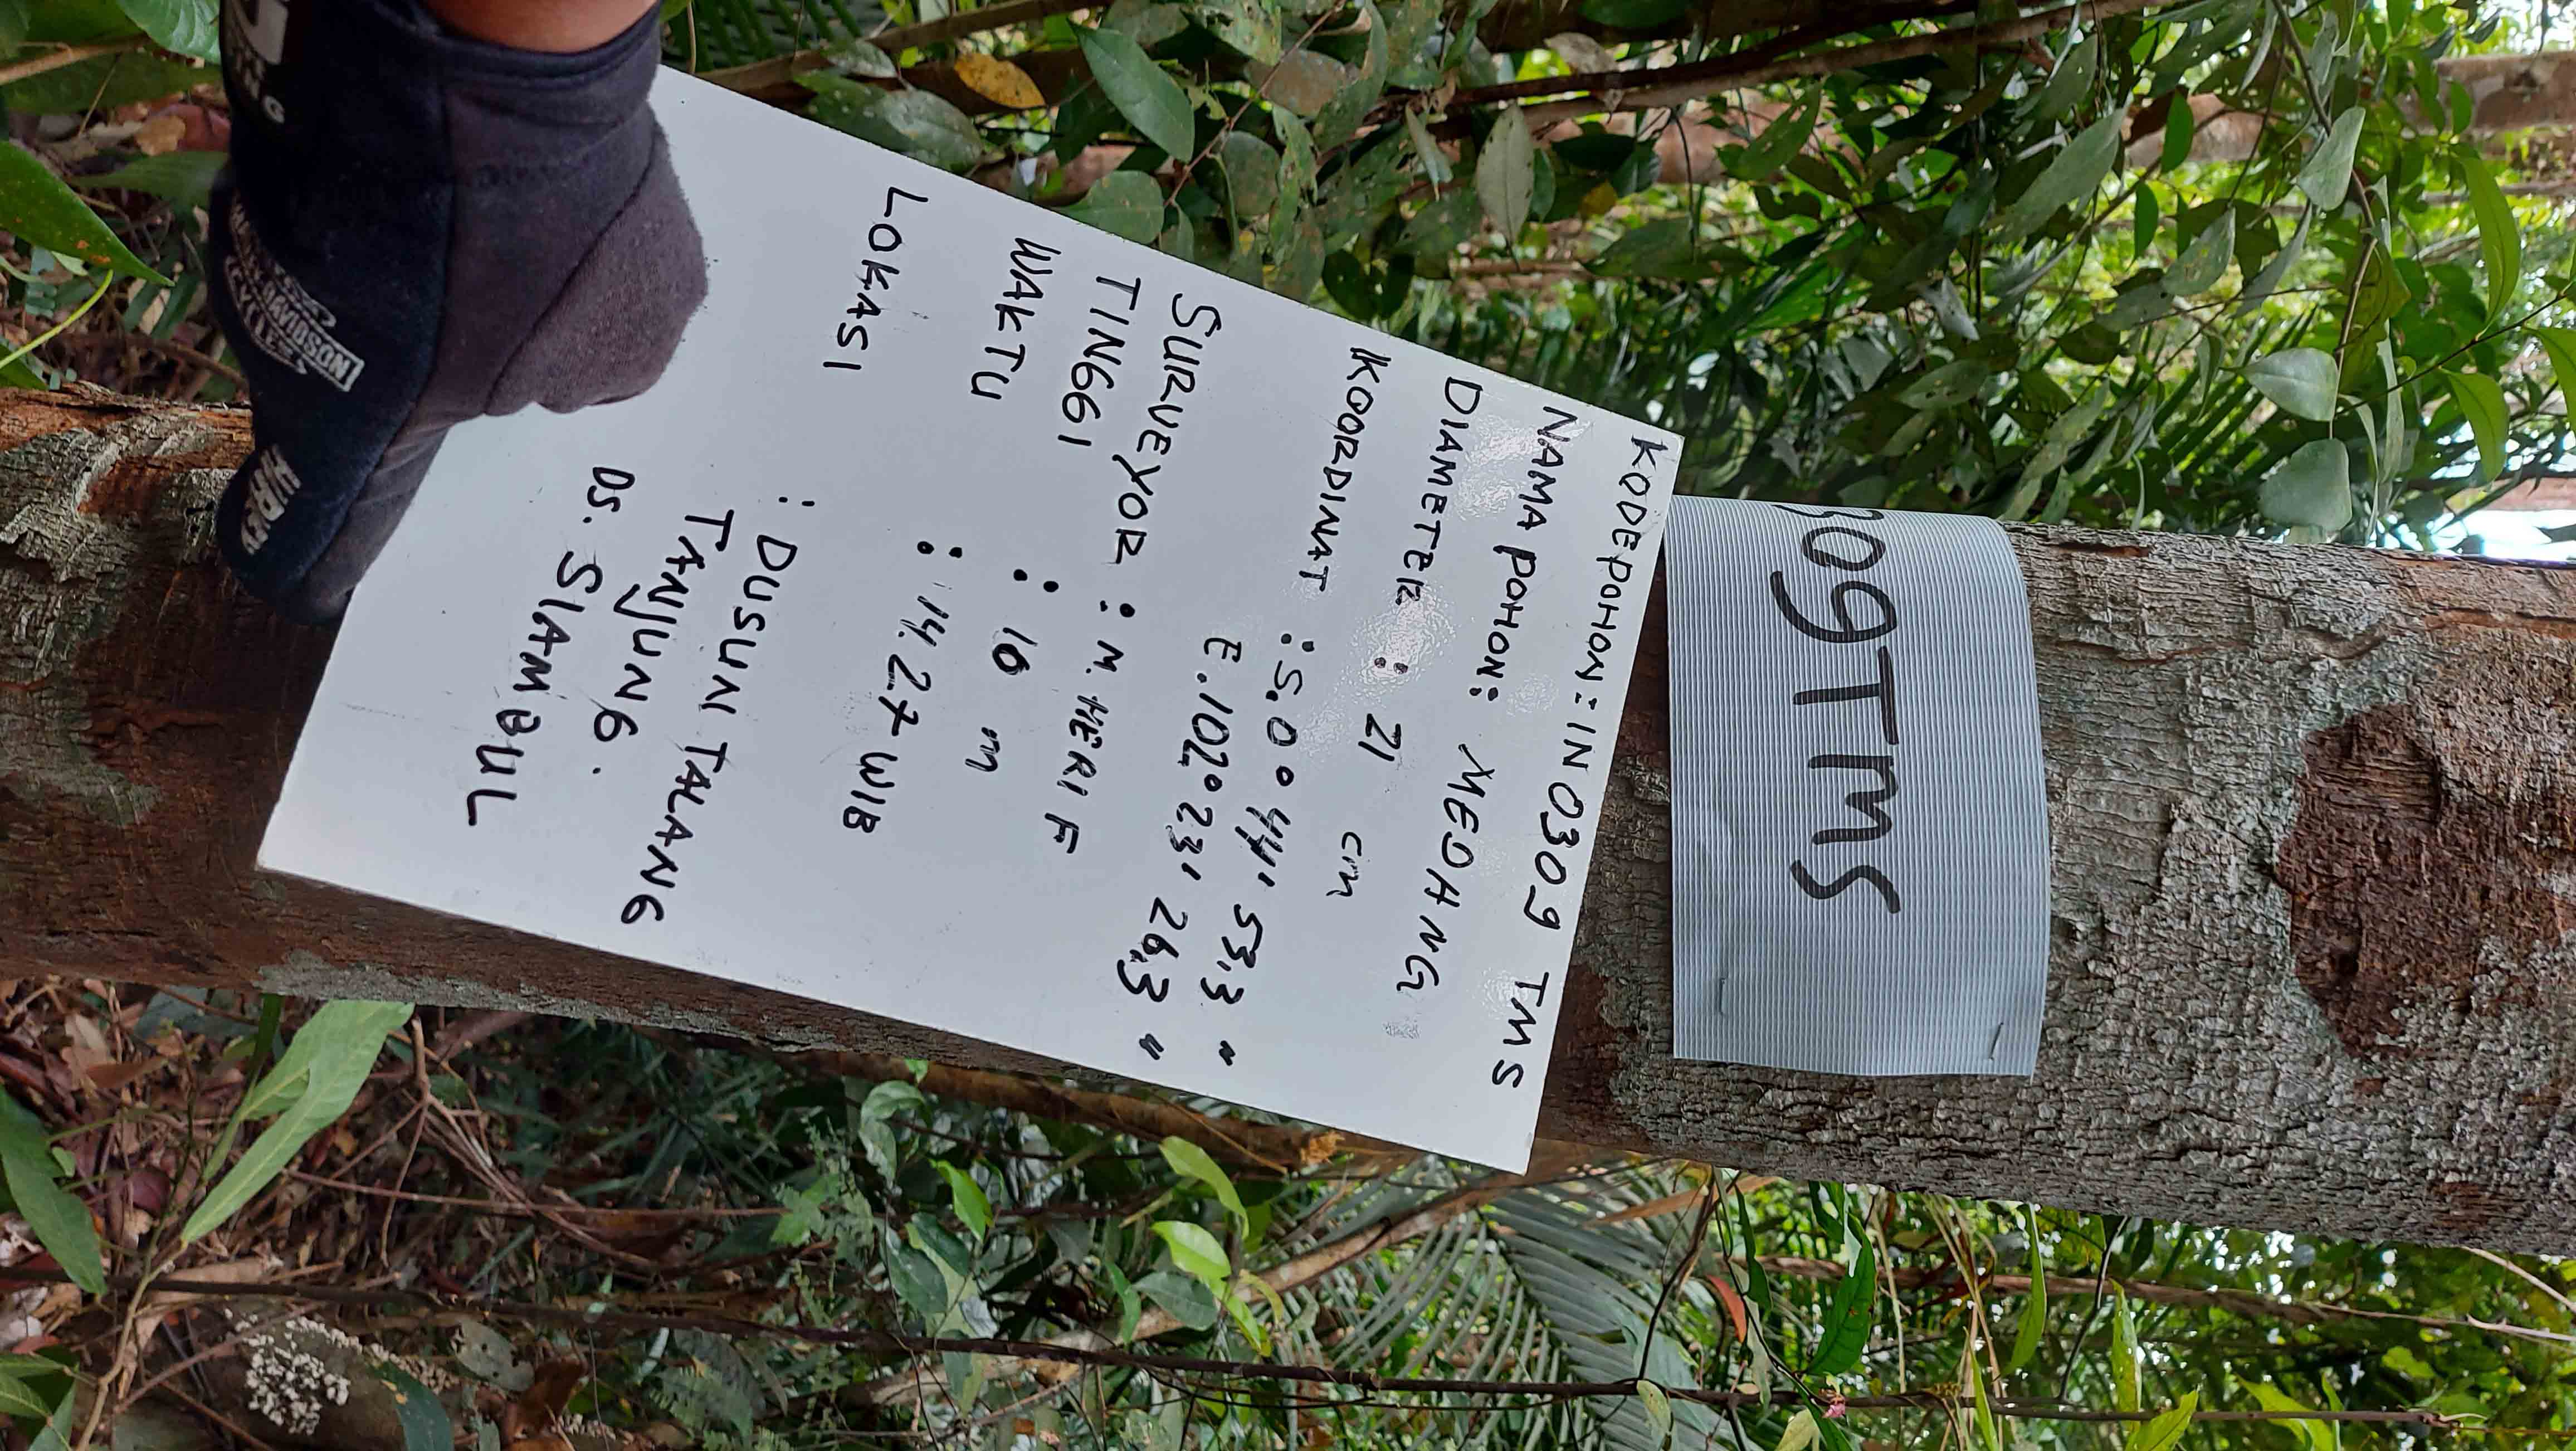 309TMS
KODE POHON: IN 0309 TMS
NAMA POHON: MEDANG
DIAMETER : 21 cm
KOORDINAT : S. 0° 44' 53,3"
E. 102° 23' 26,3"
SURVEYOR : M. HERIF
TINGGI : 16 m
WAKTU : 14.27 WIB
LOKASI : DUSUN TALANG
TANJUNG.
DS. SIAMBUL
DAVIDSON